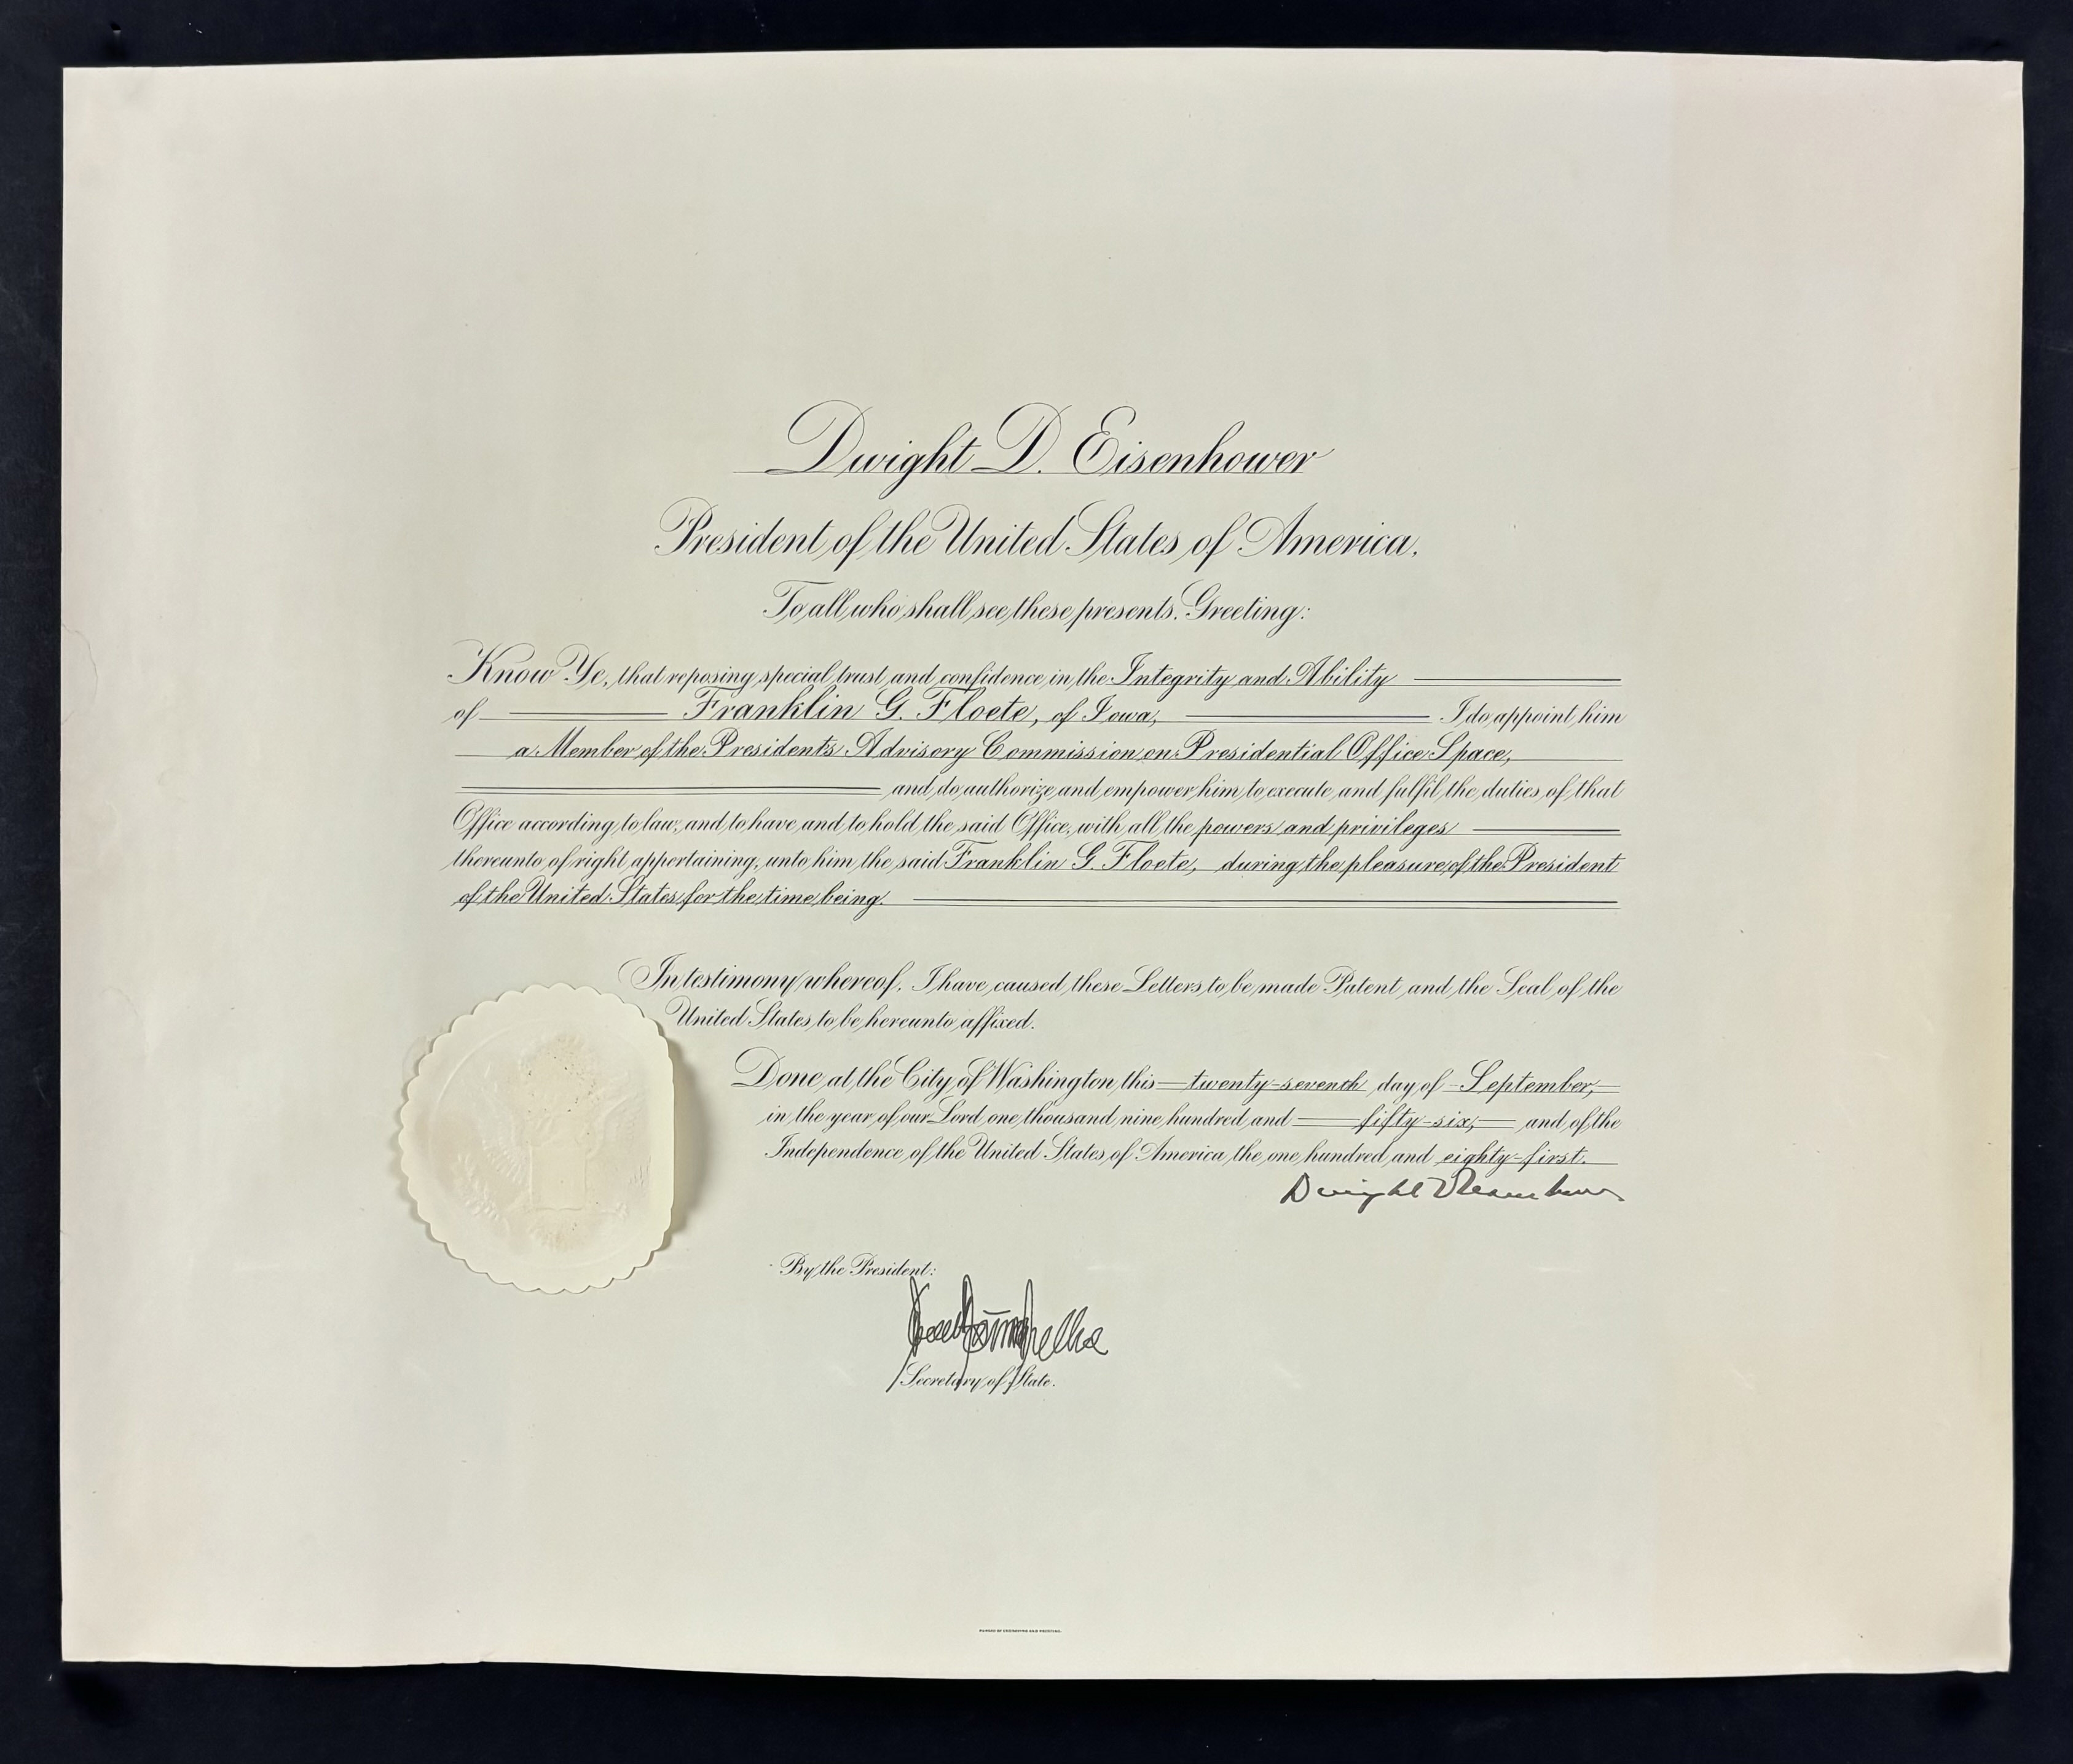 Dwight D. Eisenhower
President of the United States of America,
To all who shall see these presents, Greeting:
Know Ye, that reposing special trust and confidence in the Integrity and Ability
of Franklin G. Floete, of Iowa, I do appoint him
a Member of the Presidents Advisory Commission on Presidential Office Space,
and do authorize and empower him to execute and fulfil the duties of that
Office according to law, and to have and to hold the said Office, with all the powers and privileges
thereunto of right appertaining, unto him the said Franklin G. Floete, during the pleasure of the President
of the United States for the time being.
In testimony whereof, I have caused these Letters to be made Patent and the Seal of the
United States to be hereunto affixed.
Done at the City of Washington this twenty-seventh day of September,
in the year of our Lord one thousand nine hundred and fifty-six, and of the
Independence of the United States of America the one hundred and eighty-first.
Dwight D Eisenhower
By the President:
Secretary of State.
BUREAU OF ENGRAVING AND PRINTING.